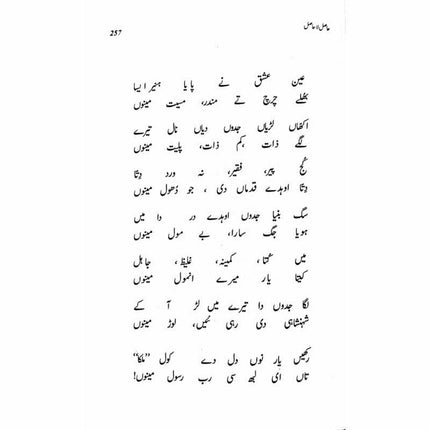 حاصل لاحاصل
257
عین عشق نے پایا ہنیر ایسا
بھلے چرچ تے مندر، مسیت مینوں
اکھاں لڑیاں جدوں دیاں نال تیرے
لگے ذات، کم ذات، پلیت مینوں
کج پیر، فقیر، نہ ورد دِتا
دِتا اوہدے قدماں دی، جو دُھول مینوں
سگ بنیا جدوں اوہدے در دا میں
ہویا جگ سارا، بے مول مینوں
میں کتا، کمینہ، غلیظ، جاہل
کیتا یار میرے انمول مینوں
لگا جدوں دا تیرے میں لڑ آ کے
شہنشاہی دی رہی نئیں، لوڑ مینوں
رکھیں یار نوں دل دے کول "ملکا"
تاں ای لبھ سی رب رسول مینوں!